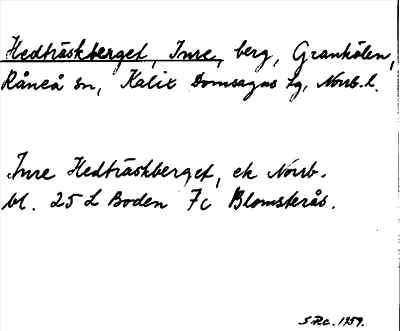 Hedträskberget, Inre, berg, Granhölen,
Råneå sn, Kalix Domsagas tg, Norrb. l.
Inre Hedträskberget, ek Norrb.
bl. 25 L Boden 7c Blomsterås.
1959.